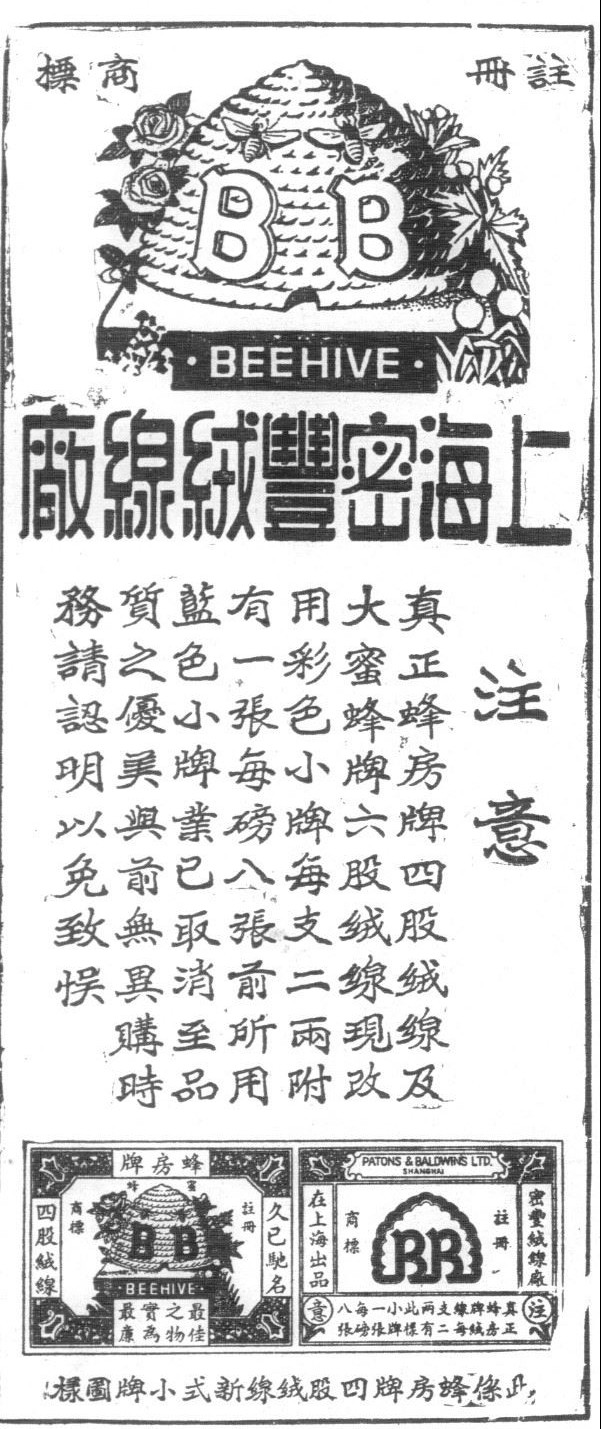 註冊 商標
B B
· BEEHIVE ·
上海密豐絨線廠
注意
真正蜂房牌四股絨線及
大蜜蜂牌六股絨線現改
用彩色小牌每支二兩附
有一張每磅八張前所用
藍色小牌業已取消至品
質之優美與前無異購時
務請認明以免致悞
PATONS & BALDWINS LTD.
SHANGHAI
密豐絨線廠
註冊
BB
商標
在上海出品
注
真正蜂房牌絨線每支二兩有此樣小牌一張每磅八張
意
蜂房牌
久已馳名
註冊
B B
· BEEHIVE ·
商標
四股絨線
最佳
之物
實為
最廉
此係蜂房牌四股絨線新式小牌圖樣